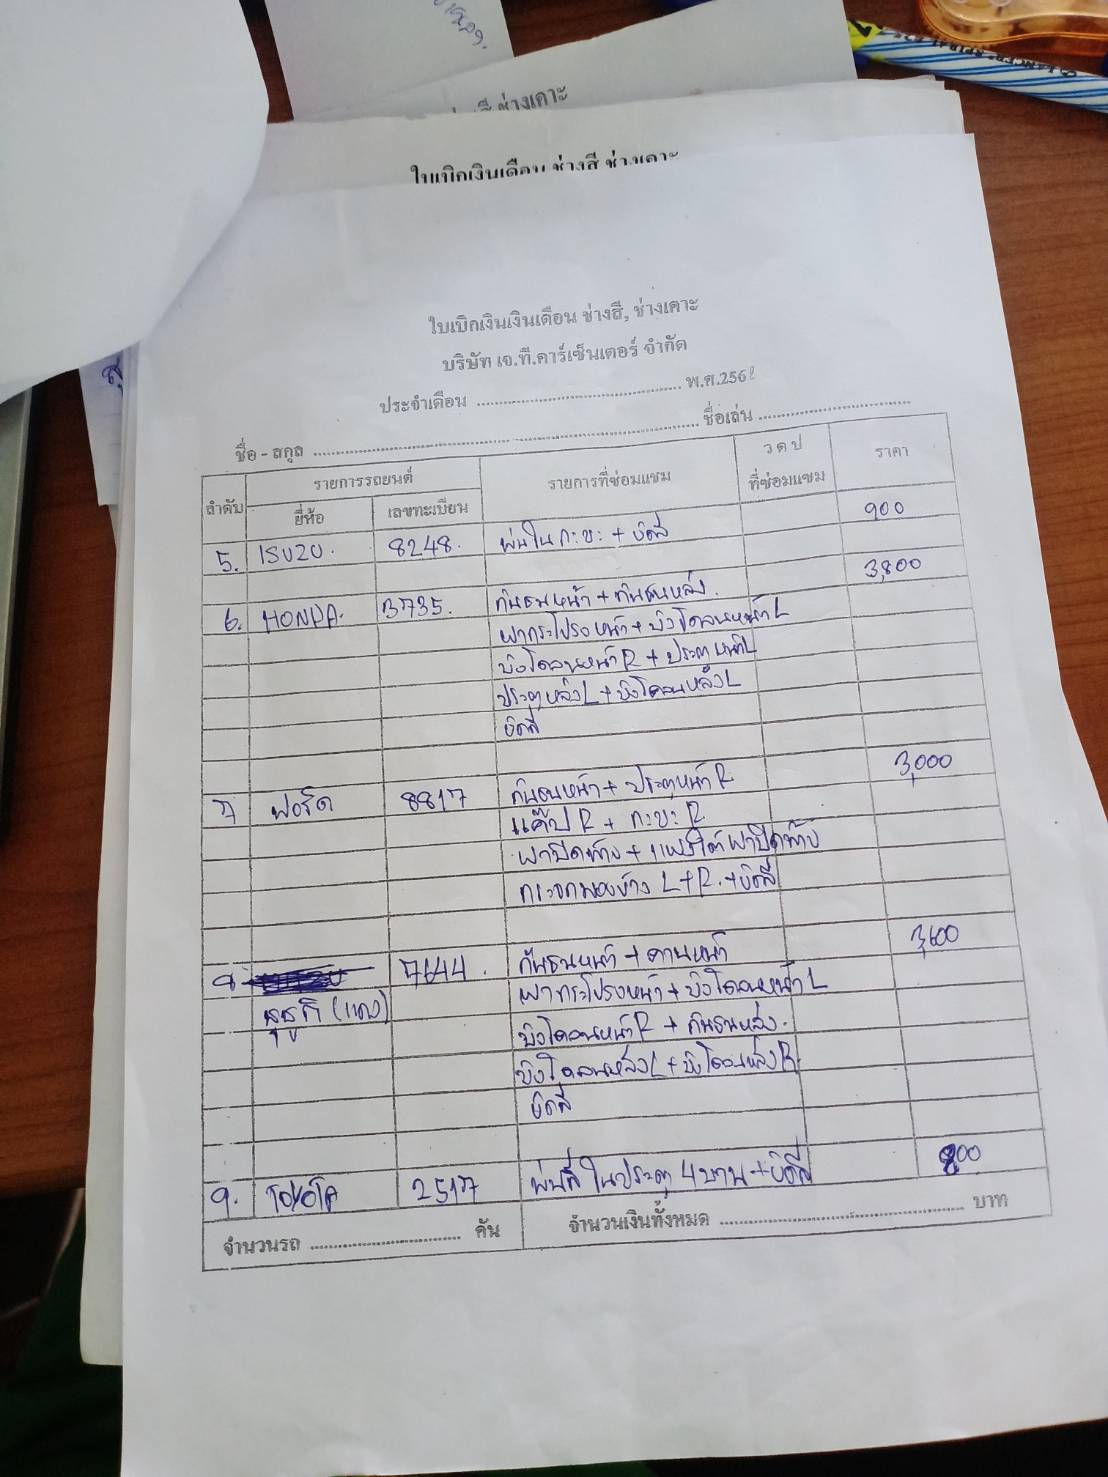 ช่างเคาะ
ใบเบิกเงินเดือน ช่างสี ช่างเคาะ
ใบเบิกเงินเงินเดือน ช่างสี, ช่างเคาะ
บริษัท เจ.ที.คาร์เซ็นเตอร์ จำกัด
ประจำเดือน .................... พ.ศ.256
ชื่อ - สกุล .................... ชื่อเล่น ....................
ลำดับ รายการรถยนต์ รายการที่ซ่อมแซม ว ด ป ที่ซ่อมแซม ราคา
ยี่ห้อ เลขทะเบียน
5. ISUZU. 8248. พ่นใน กะบะ + ขัดสี 900
6. HONDA. 3735. กันชนหน้า + กันชนหลัง. 3,800
ฝากระโปรงหน้า + บังโคลนหน้า L
บังโคลนหน้า R + ประตูหน้า L
ประตูหลัง L + บังโคลนหลัง L
ขัดสี
7 ฟอร์ด 8817 กันชนหน้า + ประตูหน้า R 3,000
แค๊ป R + กะบะ R
ฝาปิดท้าย + แผงใต้ฝาปิดท้าย
กระจกมองข้าง L + R. + ขัดสี
8 7644. กันชนหน้า + คานหน้า 3,600
ซูซูกิ (แดง) ฝากระโปรงหน้า + บังโคลนหน้า L
บังโคลนหน้า R + กันชนหลัง.
บังโคลนหลัง L + บังโคลนหลัง R
ขัดสี
9. TOYOTA 2517 พ่นสี ในประตู 4 บาน + ขัดสี 800
จำนวนรถ .................... คัน จำนวนเงินทั้งหมด .................... บาท